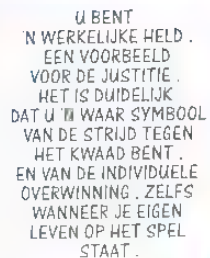 U BENT
'N WERKELIJKE HELD .
EEN VOORBEELD
VOOR DE JUSTITIE .
HET IS DUIDELIJK
DAT U 'N WAAR SYMBOOL
VAN DE STRIJD TEGEN
HET KWAAD BENT .
EN VAN DE INDIVIDUELE
OVERWINNING . ZELFS
WANNEER JE EIGEN
LEVEN OP HET SPEL
STAAT .